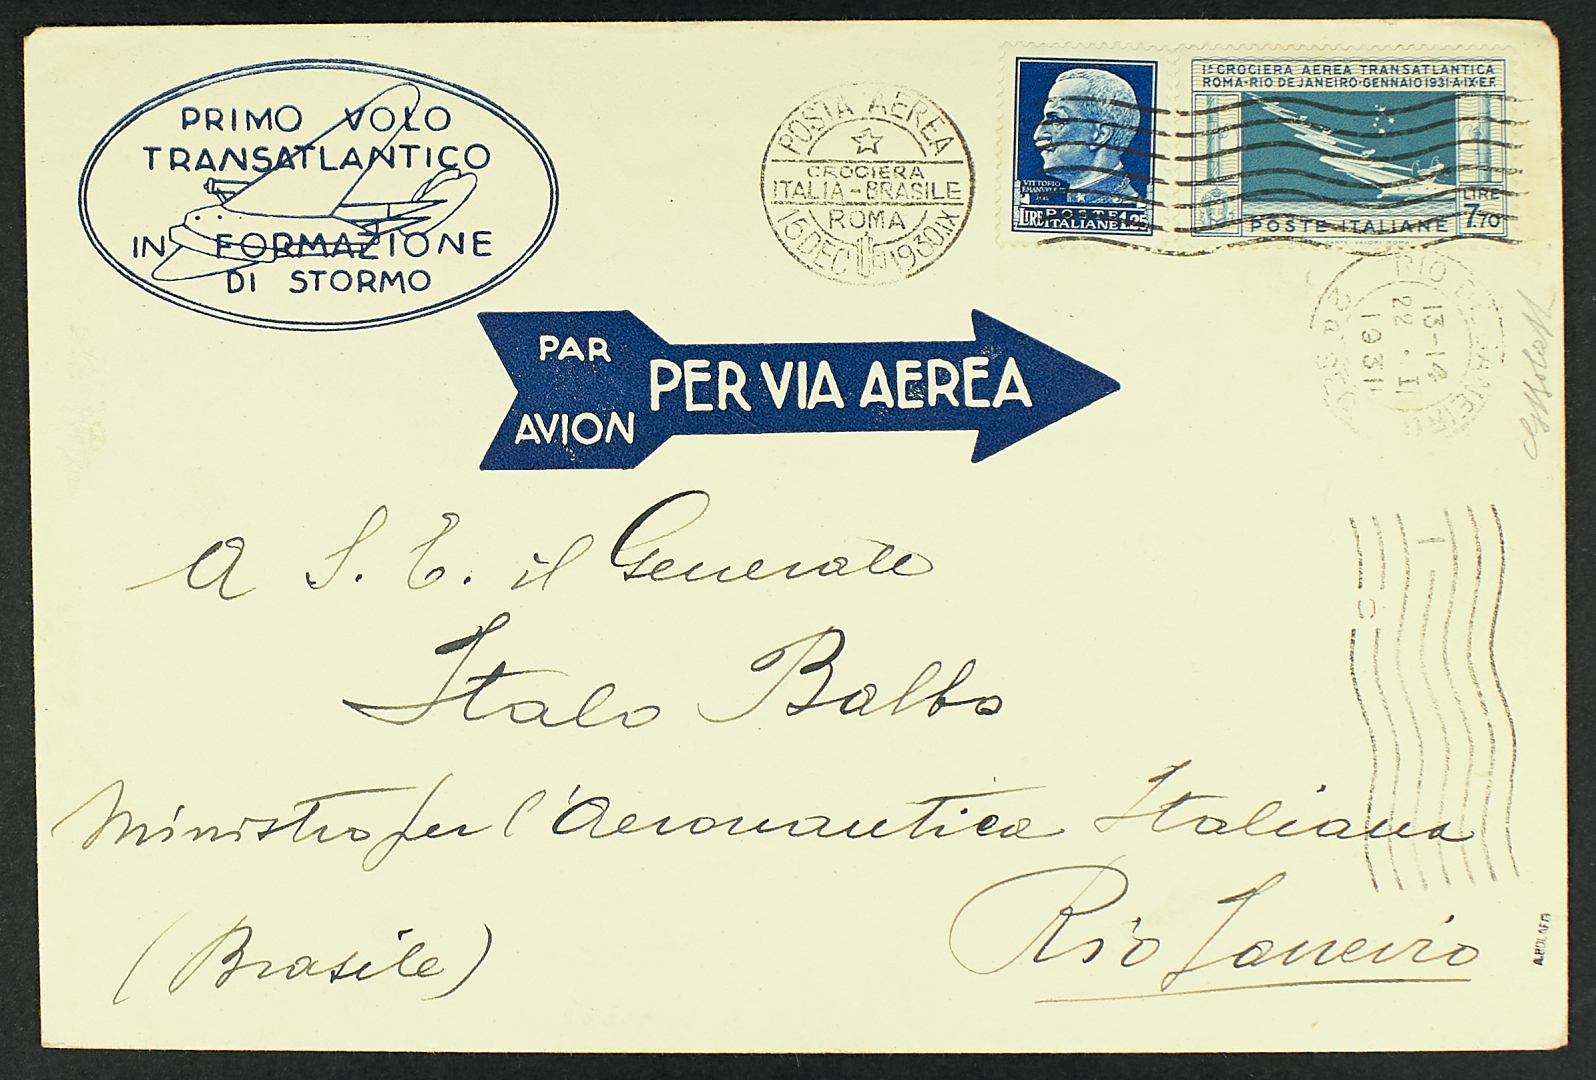 PRIMO VOLO
TRANSATLANTICO
IN FORMAZIONE
DI STORMO
POSTA AEREA
CROCIERA
ITALIA-BRASILE
ROMA
16 DEC 1930.IX
VITTORIO
EMANUELE
LIRE POSTE 1,25
ITALIANE
Iª CROCIERA AEREA TRANSATLANTICA
ROMA·RIO DE JANEIRO·GENNAIO 1931·A·IX·E.F.
LIRE
7,70
POSTE·ITALIANE
RIO DE JANEIRO
13-14
22.I
1931
2a
PAR
AVION
PER VIA AEREA
A S. E. il Generale
Italo Balbo
Ministro per l'Aeronautica Italiana
Rio Janeiro
(Brasile)
A.BOLAFFI